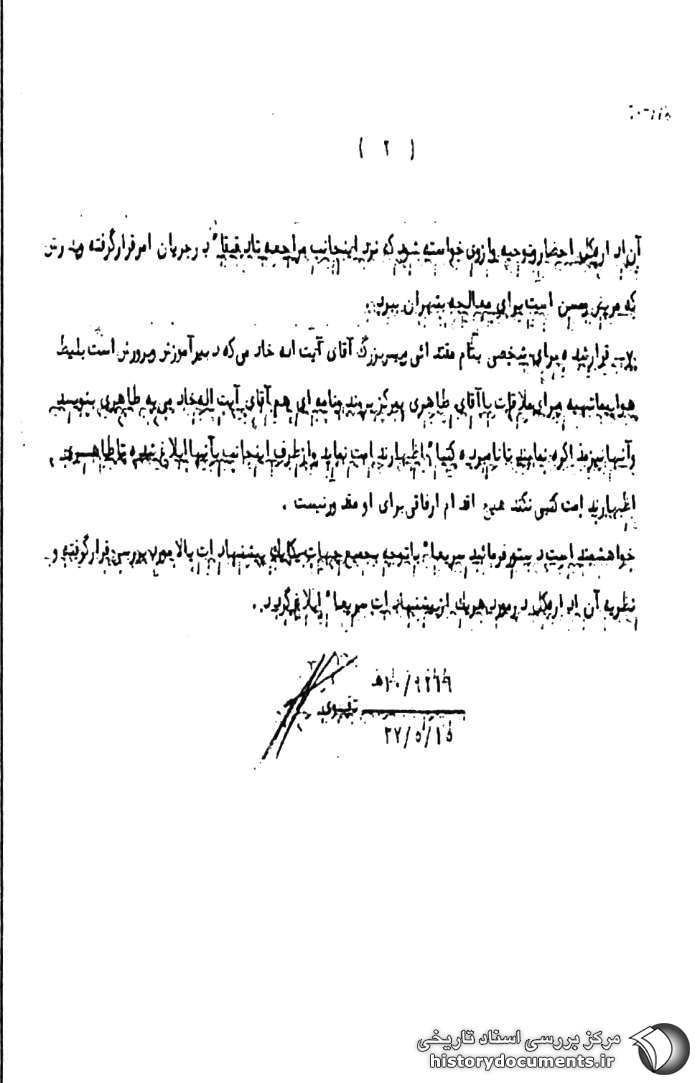 ( ۲ )
آن اداره کل احضار و توجیه و از وی خواسته شود که نزد اینجانب مراجعه تا دقیقا" در جریان امر قرار گرفته و پدرش
که مریض و مسن است برای معالجه بتهران ببرد.
قرار شده برای شخصی بنام مقتدائی و پسر بزرگ آقای آیت اله خادمی که دبیر آموزش و پرورش است بلیط
هواپیما تهیه و برای ملاقات با آقای طاهری بمرکز بروند و نامه ای هم آقای آیت اله خادمی به طاهری بنویسد
و آنها نیز مذاکره نمایند تا نامبرده کتبا" اظهار ندامت نماید و از طرف اینجانب بآنها ابلاغ شده تا طاهری
اظهار ندامت کتبی نکند هیچ اقدام ارفاقی برای او مقدور نیست .
خواهشمند است دستور فرمائید سریعا" با توجه بجمیع جهات یکایک پیشنهادات بالا مورد بررسی قرار گرفته و
نظریه آن اداره کل در مورد هر یک از پیشنهادات سریعا" ابلاغ گردد .
تقوی
۲۷/۵/۱۵
مرکز بررسی اسناد تاریخی
historydocuments.ir